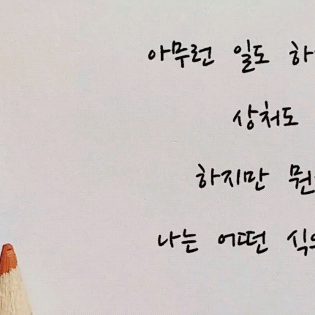 아무런 일도 하
상처도
하지만 뭔
나는 어떤 식으